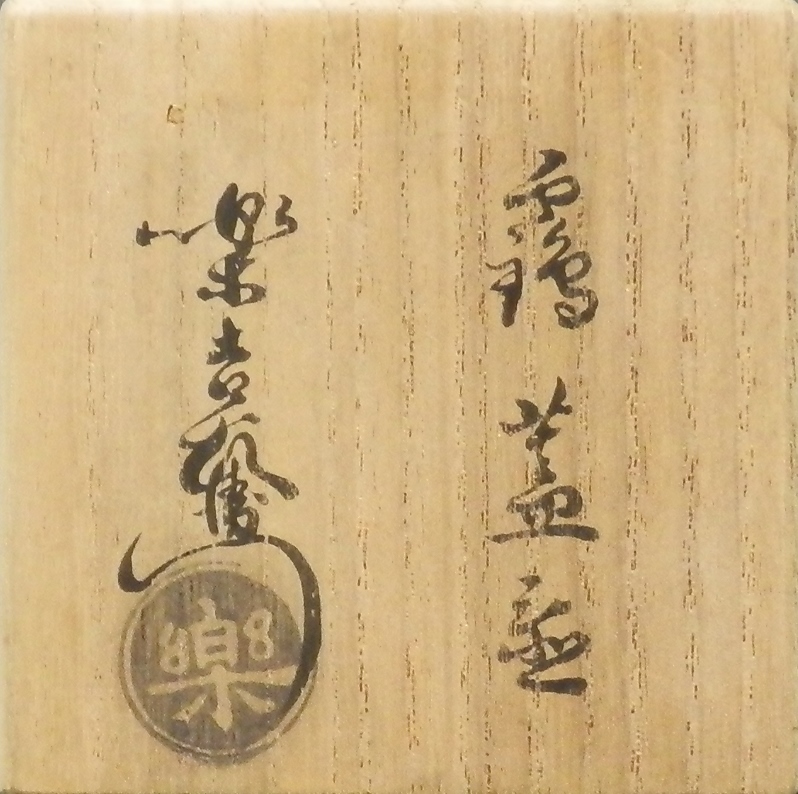 靏蓋置
樂吉左衛門
樂